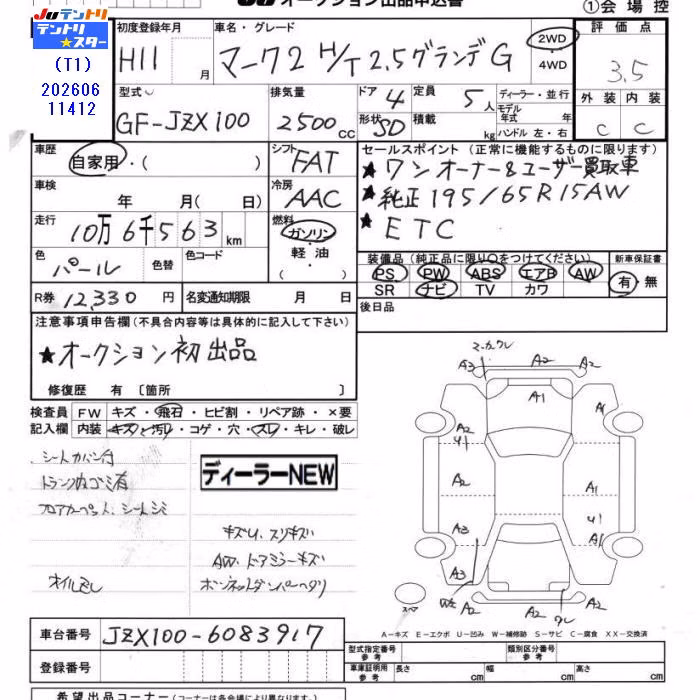 JU オークション出品申込書
①会場控
JUテントリ
テントリ★スター
(T1)
202606
11412
初度登録年月 車名・グレード 2WD 評価点
H11 月 マーク2 H/T 2.5グランデG ・4WD 3.5
型式 排気量 ドア 4 定員 5人 ディーラー・並行 外装 内装
モデル年式 年
GF-JZX100 2500cc 形状 SD 積載 kg ハンドル 左・右 C C
車歴 自家用・( ) シフト FAT
セールスポイント(正常に機能するものに限ります)
★ワンオーナー&ユーザー買取車
車検 年 月( 日) 冷房 AAC
★純正195/65R15AW
走行 10万6千563km 燃料 ガソリン・軽油・( )
★ETC
色 パール 色替 色コード
装備品(純正品に限り○をつけてください) 新車保証書
PS PW ABS エアB AW 有・無
SR ナビ TV カワ
R券 12,330円 名変通知期限 月 日
後日品
注意事項申告欄(不具合内容等は具体的に記入して下さい)
★オークション初出品
修復歴 有〔箇所 〕
検査員 FW キズ・飛石・ヒビ割・リペア跡・×要
記入欄 内装 キズ・汚レ・コゲ・穴・スレ・キレ・破レ
シートカバー付
トランク内ゴミ有
フロアカーペット、シートシミ
ディーラーNEW
キズU、スリキズ
AW、ドアミラーキズ
オイルモレ
ボンネットダンパーヘタリ
A3 A2 A2
A1
A2 A
A2 A1
A3 A1
A3
W2 A2 クレ A2
スペア
A-キズ E-エクボ U-凹み W-補修跡 S-サビ C-腐食 XX-交換済
車台番号 JZX100-6083917
型式指定番号 参考 類別区分番号 参考
登録番号
車庫証明用 参考 長さ cm 幅 cm 高さ cm
希望出品コーナー(コーナーは各会場により異なります)